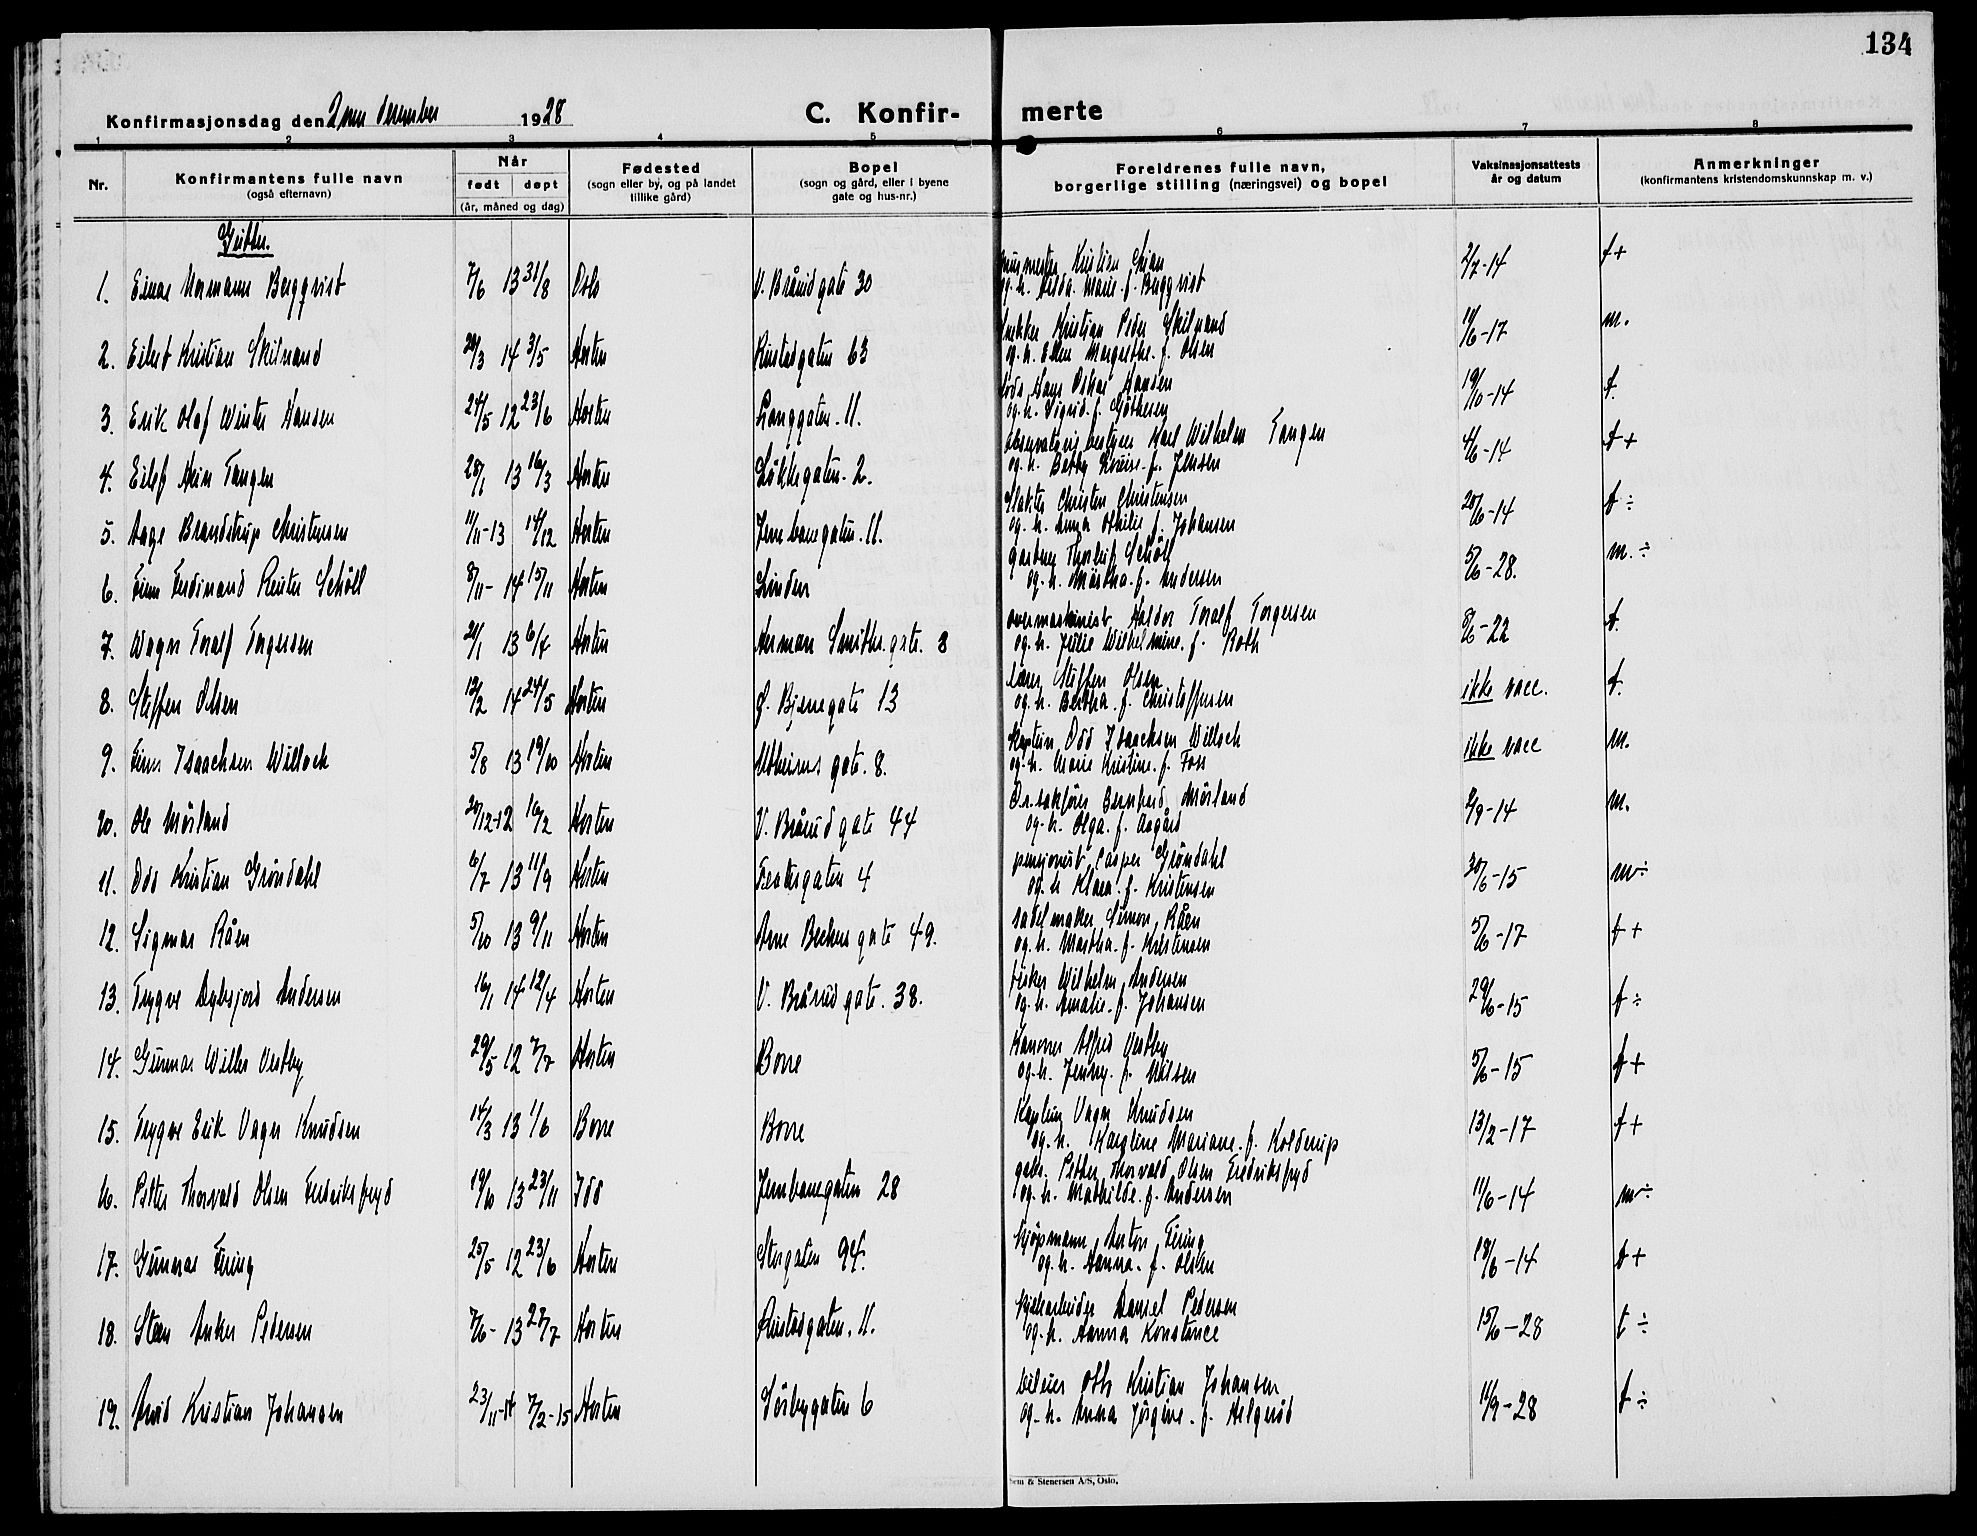 134
Konfirmasjonsdag den 2nen desember 1928
C. Konfir- merte
1 2 3 4 5 6 7 8
Nr.
Konfirmantens fulle navn
(også efternavn)
Når
født døpt
(år, måned og dag)
Fødested
(sogn eller by, og på landet
tillike gård)
Bopel
(sogn og gård, eller i byene
gate og hus-nr.)
Foreldrenes fulle navn,
borgerlige stilling (næringsvei) og bopel
Vaksinasjonsattests
år og datum
Anmerkninger
(konfirmantens kristendomskunnskap m. v.)
Gutter.
murmester Kristian
1. Einar Normann Bergqvist 7/6 13 31/8 Oslo V. Brårudgate 30 og h. Marie f. Bergqvist 2/7-14 t+
Kristian Peder Skilnand
2. Eilef Kristian Skilnand 20/3 14 3/5 Horten Rustadgaten 63 og h. Ellen Margrethe f. Olsen 11/6-17 m.
Hans Oskar Hansen
3. Erik Olaf Winter Hansen 24/5 12 23/6 Horten Langgaten. 11. og h. Sigrid f. 19/10-14 t.
Karl Wilhelm Tangen
4. Eilef Heim Tangen 28/1 13 16/3 Horten Løkkegaten. 2. og h. Betty Lovise f. Jensen 4/6-14 t+
Slakter Christen Christensen
5. Aage Brandstrup Christensen 11/11-13 14/12 Horten Jernbanegaten. 11. og h. Anna Othilie f. Johansen 20/6-14 t ÷
gartner Thorleif Schøll
6. Finn Ferdinand Reuter Schøll 8/11-14 15/11 Horten Linden og h. Märtha. f. Andersen 5/6-28. m. ÷
overmaskinist Haldor Toralf Torgersen
7. Wagn Toralf Torgersen 20/1 13 6/4 Horten Herman Smiths. gate. 8 og h. Julie Wilhelmine. f. Roth 8/6-22 t.
lærer Steffen Olsen
8. Steffen Olsen 12/2 14 24/5 Horten Ø. Bjernegate 13 og h. Bertha. f. Christoffersen ikke vacc. t.
Kaptein Odd Isaachsen Willoch
9. Finn Isaachsen Willoch 5/8 13 19/10 Horten Apotheimes gate. 8. og h. Marie Kristine. f. Foss ikke vacc m.
O.r.sakfører Bernhard Mørland
10. Ole Mørland 20/12-12 16/2 Horten V. Brårudgate 44 og h. Olga. f. Aagård 2/9-14 m.
pensjonist Casper Grøndahl
11. Odd Kristian Grøndahl 6/7 13 11/9 Horten Fearlesgaten 4 og h Klara. f. Kristensen 30/6-15 m ÷
sadelmaker Simon Råen
12. Sigmar Råen 5/10 13 9/11 Horten Arne Beckers gate 49. og h. Martha. f. Kristensen 5/6-17 t+
fisker Wilhelm Andersen
13. Trygve Andersen 16/1 14 12/4 Horten V. Brårud gate. 38. og h. Amalie. f. Johansen 29/6-15 t ÷
Kanoner Alfred Vestby
14. Gunnar Willer Vestby 29/5 12 7/7 Horten Borre og h. Jenny. f. Nilsen 5/6-15 t+
Kaptein Vagn Knudsen
15. Trygve Erik Vagn Knudsen 14/3 13 1/6 Borre Borre og h. Karoline Mariane. f. Kolderup 13/2-17 t+
Petter Thorvald Olsen Fredriksfryd
16. Petter Thorvald Olsen Fredriksfryd 19/10 13 23/11 Idd Jernbanegaten 28 og h. Mathilde. f. Andersen 11/6-14 m ÷
Kjøpmann Anton Firing
17. Gunnar Firing 25/5 12 23/6 Horten Storgaten 94. og h. Hanna. f. Olsen 18/6-14 t+
Daniel Pedersen
18. Steen Anker Pedersen 7/6-13 27/7 Horten Rustadgaten. 11. og h. Hanna Konstance 15/6-28 t ÷
bileier Otto Kristian Johansen
19. Arvid Kristian Johansen 23/11-14 7/2-15 Horten Sørbygaten 6 og h. Anna Jørgine. f. Helgerød 11/9-28 t ÷
Sem & Stenersen A/S, Oslo.